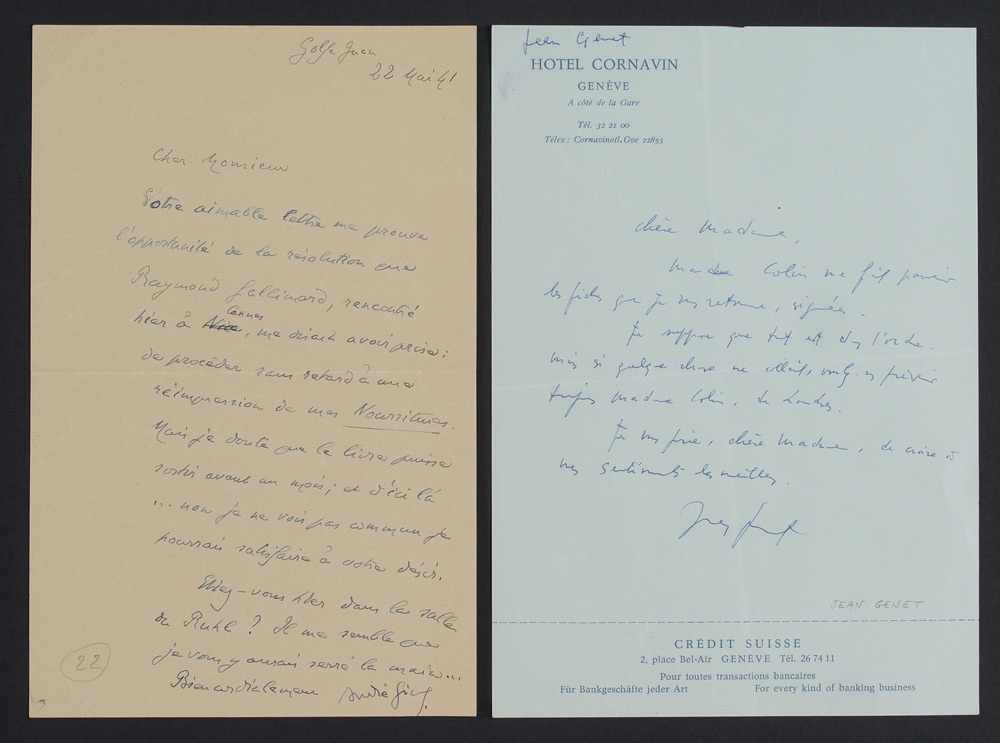 Golfe Juan
22 Mai 41
Cher Monsieur
Votre aimable lettre me prouve
l'opportunité de la résolution que
Raymond Gallimard, rencontré
hier à Nice Cannes, me disait avoir prise:
de procéder sans retard à une
réimpression de mes Nourritures.
Mais je doute que le livre puisse
sortir avant un mois; et d'ici là
... non je ne vois pas comment je
pourrais satisfaire à votre désir.
Étiez-vous hier dans la salle
du Ruhl? Il me semble que
je vous y aurais serré la main...
Bien cordialement André Gide.
22
Jean Genet
HOTEL CORNAVIN
GENÈVE
A côté de la Gare
Tél. 32 21 00
Télex: Cornavinotl. Gve 22853
chère Madame,
Madame Colin me fit parvenir
les fiches que je vous retourne, signées.
Je suppose que tout est dans l'ordre.
mais si quelque chose ne collait, voulez-vous prévenir
toujours Madame Colin, de Londres.
Je vous prie, chère Madame, de croire à
mes sentiments les meilleurs.
Jean Genet
JEAN GENET
CRÉDIT SUISSE
2, place Bel-Air GENÈVE Tél. 26 74 11
Pour toutes transactions bancaires
Für Bankgeschäfte jeder Art For every kind of banking business